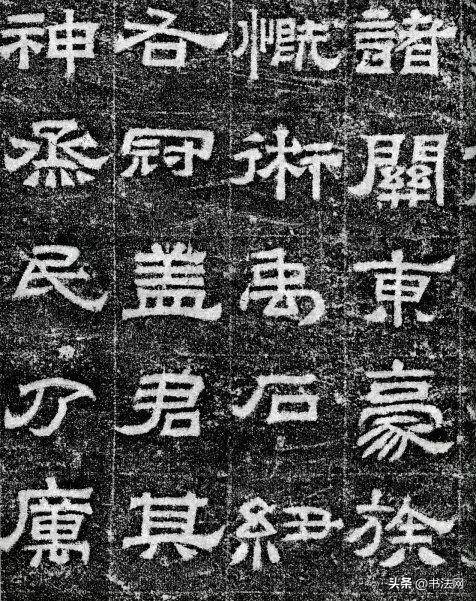 諸關東豪族
慨術禹石紐
右冠盖君其
神烝民乃厲
头条 @书法网